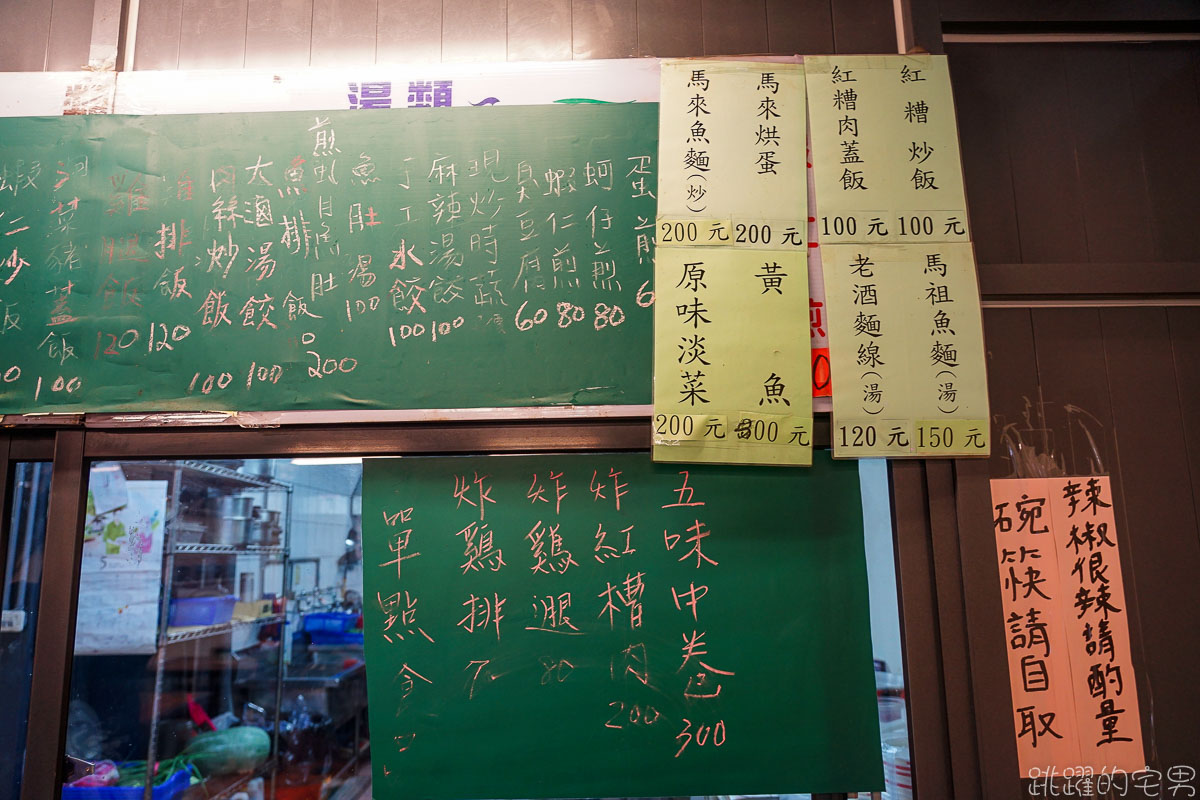 湯類
蛋煎 6
蚵仔煎 80
蝦仁煎 80
臭豆腐 60
現炒時蔬
麻辣湯餃 100
丁丁水餃 100
魚肚湯 100
煎虱目魚肚 200
魚排飯
大滷湯餃 100
肉絲炒飯 100
排飯 120
雞腿飯 120
菜豬蓋飯 100
蝦仁炒飯
馬來烘蛋 200元
馬來魚麵(炒) 200元
紅糟炒飯 100元
紅糟肉蓋飯 100元
黃魚 300元
原味淡菜 200元
馬祖魚麵(湯) 150元
老酒麵線(湯) 120元
五味中卷 300
炸紅糟肉 200
炸雞腿 80
炸雞排
單點
辣椒很辣請酌量
碗筷請自取
跳躍的宅男